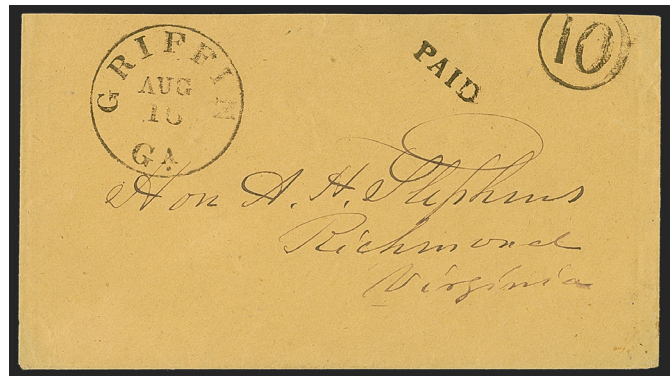 GRIFFIN
AUG
16
GA
PAID
10
Hon A. H. Stephens
Richmond
Virginia